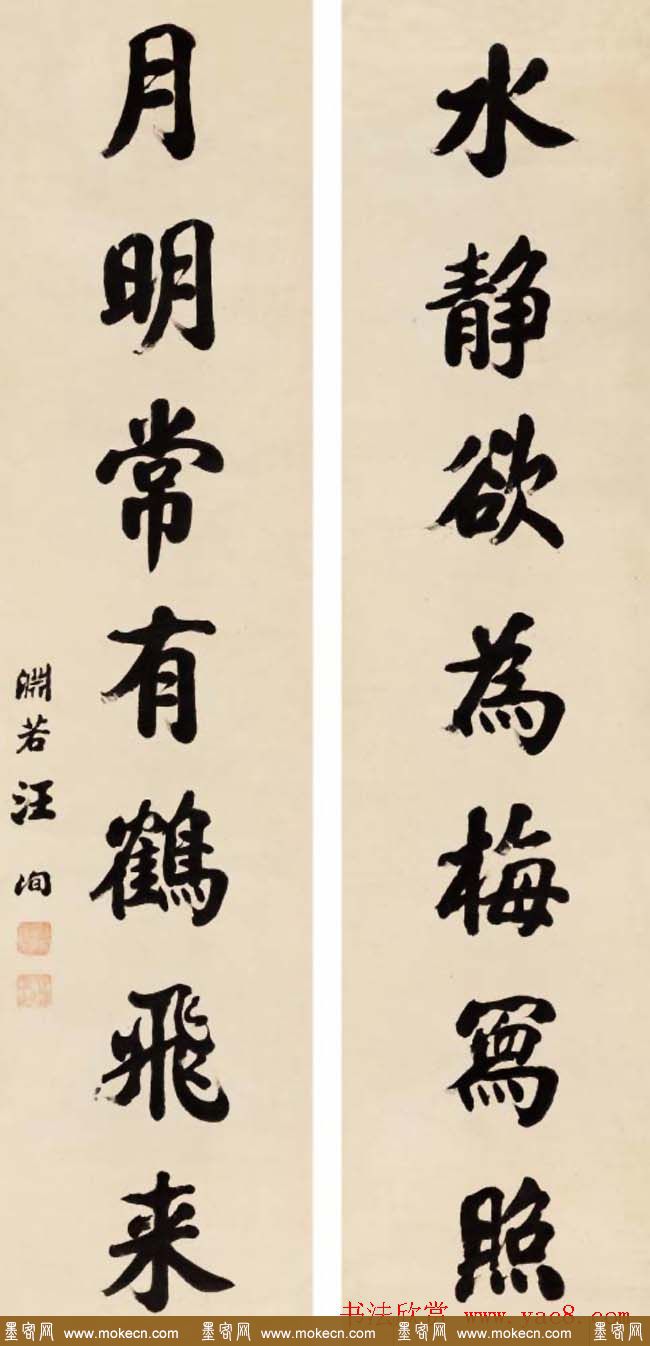 水静欲為梅寫照
月明常有鶴飛来
淵若汪洵
书法欣赏 www.yac8.com
墨客网 www.mokecn.com 墨客网 www.mokecn.com 墨客网 www.mokecn.com